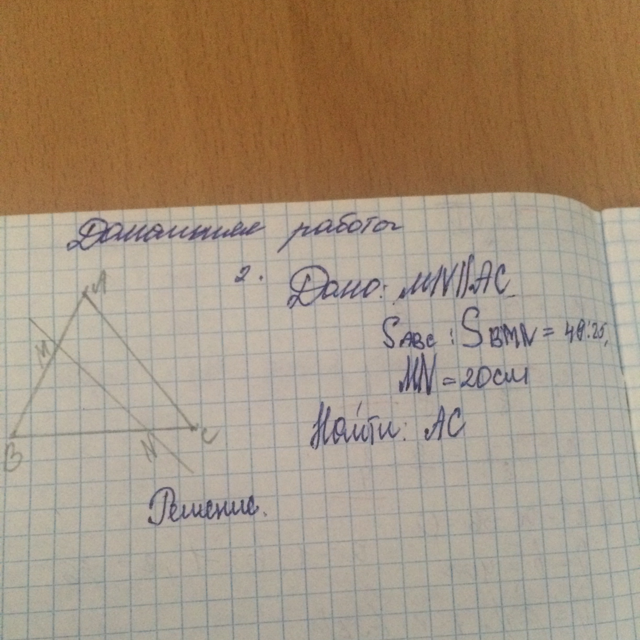 Домашняя работа
2.
Дано: MN||AC
SABC : SBMN = 49:25,
MN = 20см
Найти: AC
A
M
B
N
C
Решение.